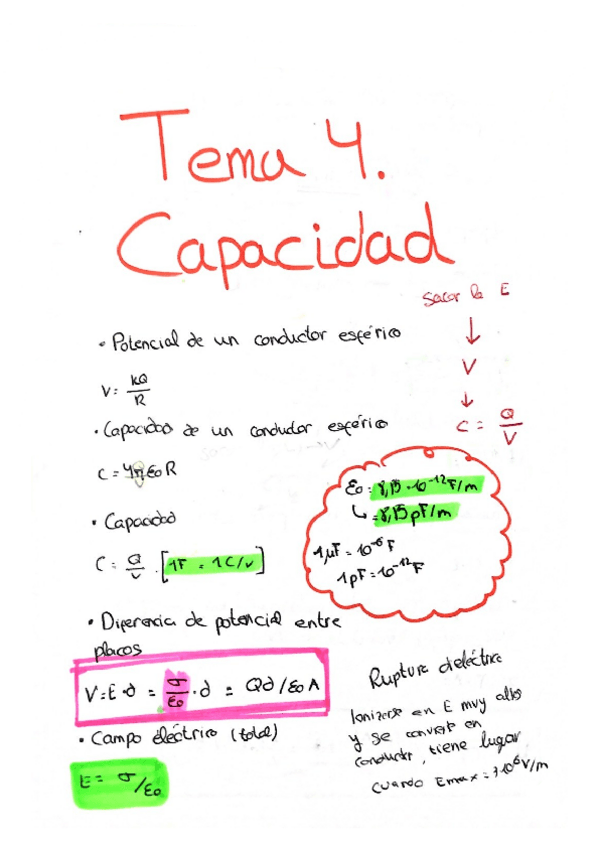 Tema 4.
Capacidad
sacar la E
↓
V
↓
C = Q/V
• Potencial de un conductor esférico
V = kQ/R
• Capacidad de un conductor esférico
C = 4πε0R
• Capacidad
C = Q/V · [1F = 1C/V]
ε0 = 8,85·10⁻¹² F/m
↳ = 8,85 pF/m
1μF = 10⁻⁶ F
1pF = 10⁻¹² F
• Diferencia de potencial entre
placas
V = E·d = σ/ε0 · d = Qd/ε0A
• Campo eléctrico (total)
E = σ/ε0
Ruptura dieléctrica
Ionizarse en E muy altos
y se convierte en
conductor, tiene lugar
cuando Emax = 3·10⁶V/m